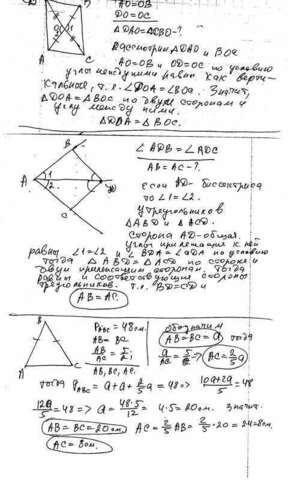 AO=OB
DO=OC
ΔDAO=ΔCBO-?
Рассмотрим ΔDAO и BOC
AO=OB и OD=OC по условию
углы между ними равны как верти-
кальные, т.е. ∠DOA=∠BOC. Значит,
ΔDOA=ΔBOC по двум сторонам и
углу между ними.
ΔDOA=ΔBOC.
∠ADB=∠ADC
AB=AC-?
если AD- биссектриса
то ∠1=∠2.
У треугольников
ΔABD и ΔACD.
сторона AD-общая.
углы прилежащие к ней
равны ∠1=∠2 и ∠BDA=∠CDA по условию
тогда ΔABD=ΔACD по стороне и
двум прилежащим сторонам. Тогда
равны и соответствующие стороны
треугольников. т.е. BD=CD и
AB=AC.
B
A
C
P_ABC=48см.
AB=BC
AB/AC=5/2
AB, BC, AC.
обозначим
AB=BC=a тогда
a/AC=5/2 => AC=2/5a
тогда P_ABC=a+a+2/5a=48 => 10a+2a/5=48
12a/5=48 => a=48·5/12=4·5=20см. Значит.
AB=BC=20см. AC=2/5AB=2/5·20=2·4=8см.
AC=8см.